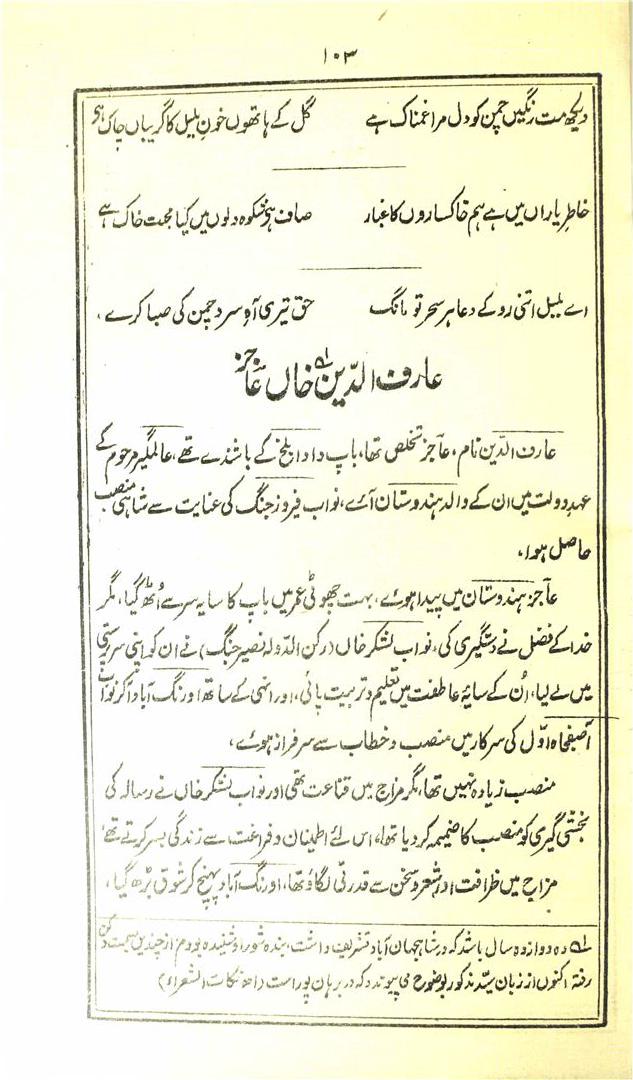 ۱۰۳
دیکھ مت رنگیں چمن کو دل مرا غمناک ہے گل کے ہاتھوں خونِ بلبل کا گریباں چاک ہے
خاطرِ یاراں میں ہے ہم خاکساروں کا غبار صاف ہو شکوہ دلوں میں کیا محبت خاک ہے
اے بلبل اتنی رو کے دعا ہر سحر تو مانگ حق تیری آہِ سرد چمن کی صبا کرے ،
عارف الدّین خاں عاؔجز
عارف الدّین نام، عاؔجز تخلص تھا، باپ دادا بلخ کے باشندے تھے، عالمگیر مرحوم کے
عہدِ دولت میں ان کے والد ہندوستان آئے، نواب فیروز جنگ کی عنایت سے شاہی منصب
حاصل ہوا،
عاؔجز ہندوستان میں پیدا ہوئے، بہت چھوٹی عمر میں باپ کا سایہ سر سے اُٹھ گیا، مگر
خدا کے فضل نے دستگیری کی، نواب لشکر خاں (رکن الدّولہ نصیر جنگ) نے ان کو اپنی سرپرستی
میں لے لیا، اُن کے سایۂ عاطفت میں تعلیم و تربیت پائی، اور انہی کے ساتھ اورنگ آباد آکر نواب
آصفجاہ اوّل کی سرکار میں منصب و خطاب سے سرفراز ہوئے،
منصب زیادہ نہیں تھا، مگر مزاج میں قناعت تھی اور نواب لشکر خاں نے رسالہ کی
بخشی گیری کو منصب کا ضمیمہ کر دیا تھا، اس لئے اطمینان و فراغت سے زندگی بسر کرتے تھے
مزاج میں ظرافت اور شعر و سخن سے قدرتی لگاؤ تھا، اورنگ آباد پہنچ کر شوق بڑھ گیا،
لہ دہ دوازدہ سال باشد کہ در شاہجہان آباد تشریف داشت، بندہ شور او شنیدہ بودم از چندیں بسمت دکن
رفتہ اکنوں از زبان سیّد مذکور بوضوح می پیوندد کہ در برہان پور است (نکات الشعراء)